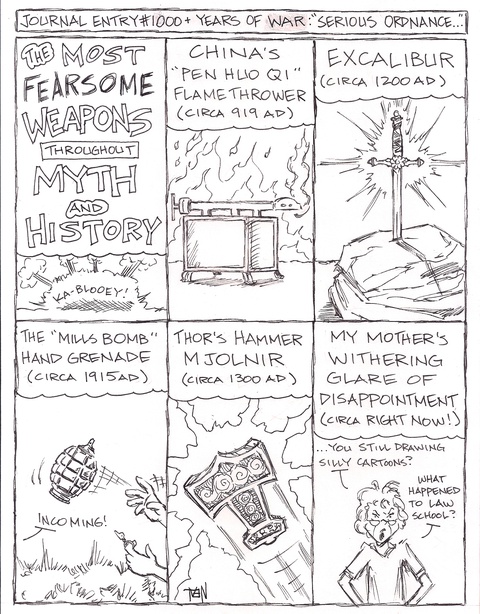 JOURNAL ENTRY#1000+ YEARS OF WAR: "SERIOUS ORDNANCE..."
THE MOST
FEARSOME
WEAPONS
THROUGHOUT
MYTH
AND
HISTORY
KA-BLOOEY!
CHINA'S
"PEN HUO QI"
FLAMETHROWER
(CIRCA 919 AD)
EXCALIBUR
(CIRCA 1200 AD)
THE "MILLS BOMB"
HAND GRENADE
(CIRCA 1915 AD)
INCOMING!
THOR'S HAMMER
MJOLNIR
(CIRCA 1300 AD)
MY MOTHER'S
WITHERING
GLARE OF
DISAPPOINTMENT
(CIRCA RIGHT NOW!)
...YOU STILL DRAWING
SILLY CARTOONS?
WHAT
HAPPENED
TO LAW
SCHOOL?